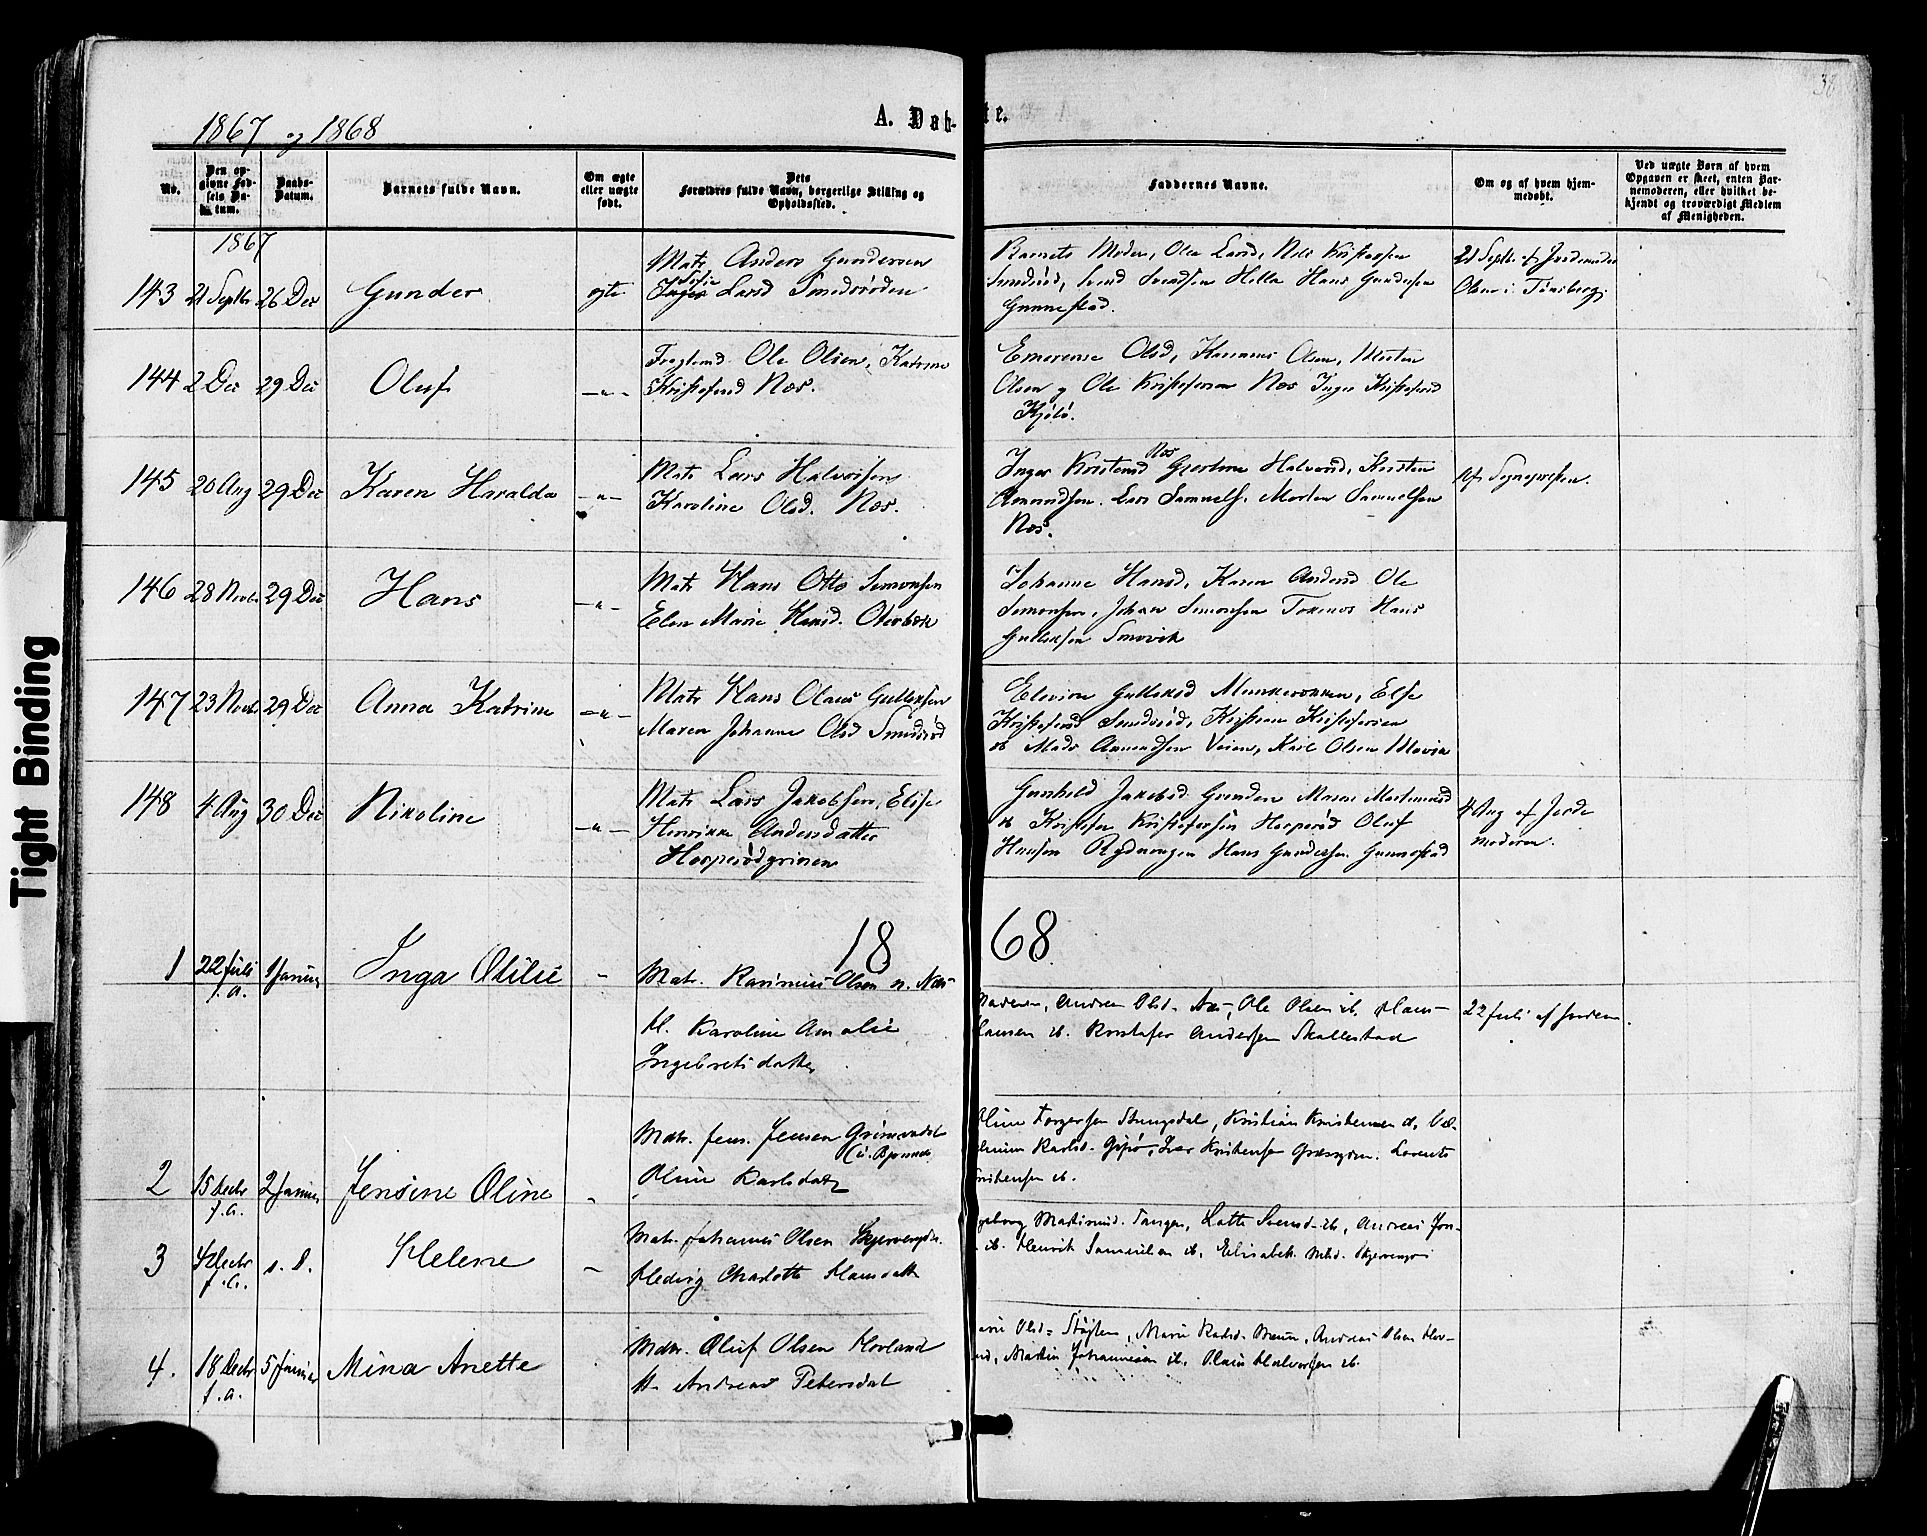 38
1867 og 1868
A. Døb- te.
No.
Den op-
givne Fød-
sels Da-
tum.
Daabs-
Datum.
Barnets fulde Navn.
Om ægte
eller uægte
født.
Dets
Forældres fulde Navn, borgerlige Stilling og
Opholdssted.
Faddernes Navne.
Om og af hvem hjem-
medøbt.
Ved uægte Børn af hvem
Opgaven er skeet, enten Bar-
nemoderen, eller hvilket be-
kjendt og troværdigt Medlem
af Menigheden.
1867
143 21 Septbr 26 Dec Gunder ægte
Matr Anders Gundersen
Sofie
Inger Larsd Smedsrøden
Barnets Moder, Olea Larsd, Nils Kristensen
Smedsrød, Svend Svendsen Hella Hans Gundersen
Gunnestad.
21 Septbr. af Jordemoder
Olsen i Tönsberg
144 2 Dec 29 Dec Oluf -"-
Ole Olsen, Katrine
Kristofersd Næs.
Emerense Olsd, Olsen,
Olsen og Ole Kristofersen Næs Inger Kristofersd
Kjølø.
145 20 Aug 29 Dec Karen Haralda -"-
Matr Lars Halvorsen
Karoline Olsd. Næs.
Næs
Inger Kristensd Halvorsd, Kristen
Amundsen. Lars Samuels. Morten Samuelsen
Næs.
af Sognepresten.
146 28 Novbr 29 Dec Hans -"-
Matr Hans Otto Simonsen
Elen Marie Hansd. Oterbæk
Johanne Hansd, Karen Andersd Ole
Simonsen, Johan Simonsen Hans
Gulliksen
147 23 Novbr 29 Dec Anna Katrine -"-
Matr Hans Olaus Gulliksen
Maren Johanne Olsd Smedsrød
Gulliksd Else
Kristofersd Smedsrød, Kristian Kristofersen
ib Mads Amundsen Veien, Karl Olsen
148 4 Aug 30 Dec Nikoline -"-
Matr Lars Jakobsen, Elise
Henrikke Andersdatter
Hesperødgrinen
Gunhild Jakobsd. Grinden Maren Martinusd
ib Kristofer Kristofersen Hesperød Oluf
Hansen Rydningen Hans Gundersen Gunnestad
4 Aug af Jorde
moderen.
18 68
1 22 Juli
f.a.
1 Januar Inga Otilie -
Matr. Rasmus Olsen n. Næs
H. Karoline Amalie
Ingebretsdatter
Moderen, Andrea Olsd. Næs, Ole Olsen ib. Hans
Hansen ib. Kristofer Andersen Skallestad
22 Juli af Jordem.
2 15 Decbr
f.a.
2 Januar Jensine Oline -
Matr. Jens Jensen
Oline Karlsdatter
Torgersen Stangsdal, Kristian Kristensen ib,
Karlsd. Gipø, Iver Kristensen Lorents
Kristensen ib.
3 4 Decbr
f.a.
s. d. Helene -
Matr. Johannes Olsen
Hedvig Charlotte Hansdatt
Ingeborg Martinusd. Tangen, Lotte Svendsd ib, Andreas
ib. Henrik Samuelsen ib, Elisabeth
4. 18 Decbr
f.a.
5 Januar Mina Anette
Matr. Oluf Olsen Hovland
H. Andrea Petersdat
Marie Olsd Støjten, Marie Karlsd. Andreas Olsen Hov-
land, Martin Johannesen ib, Olaus Halvorsen ib.
Tight Binding